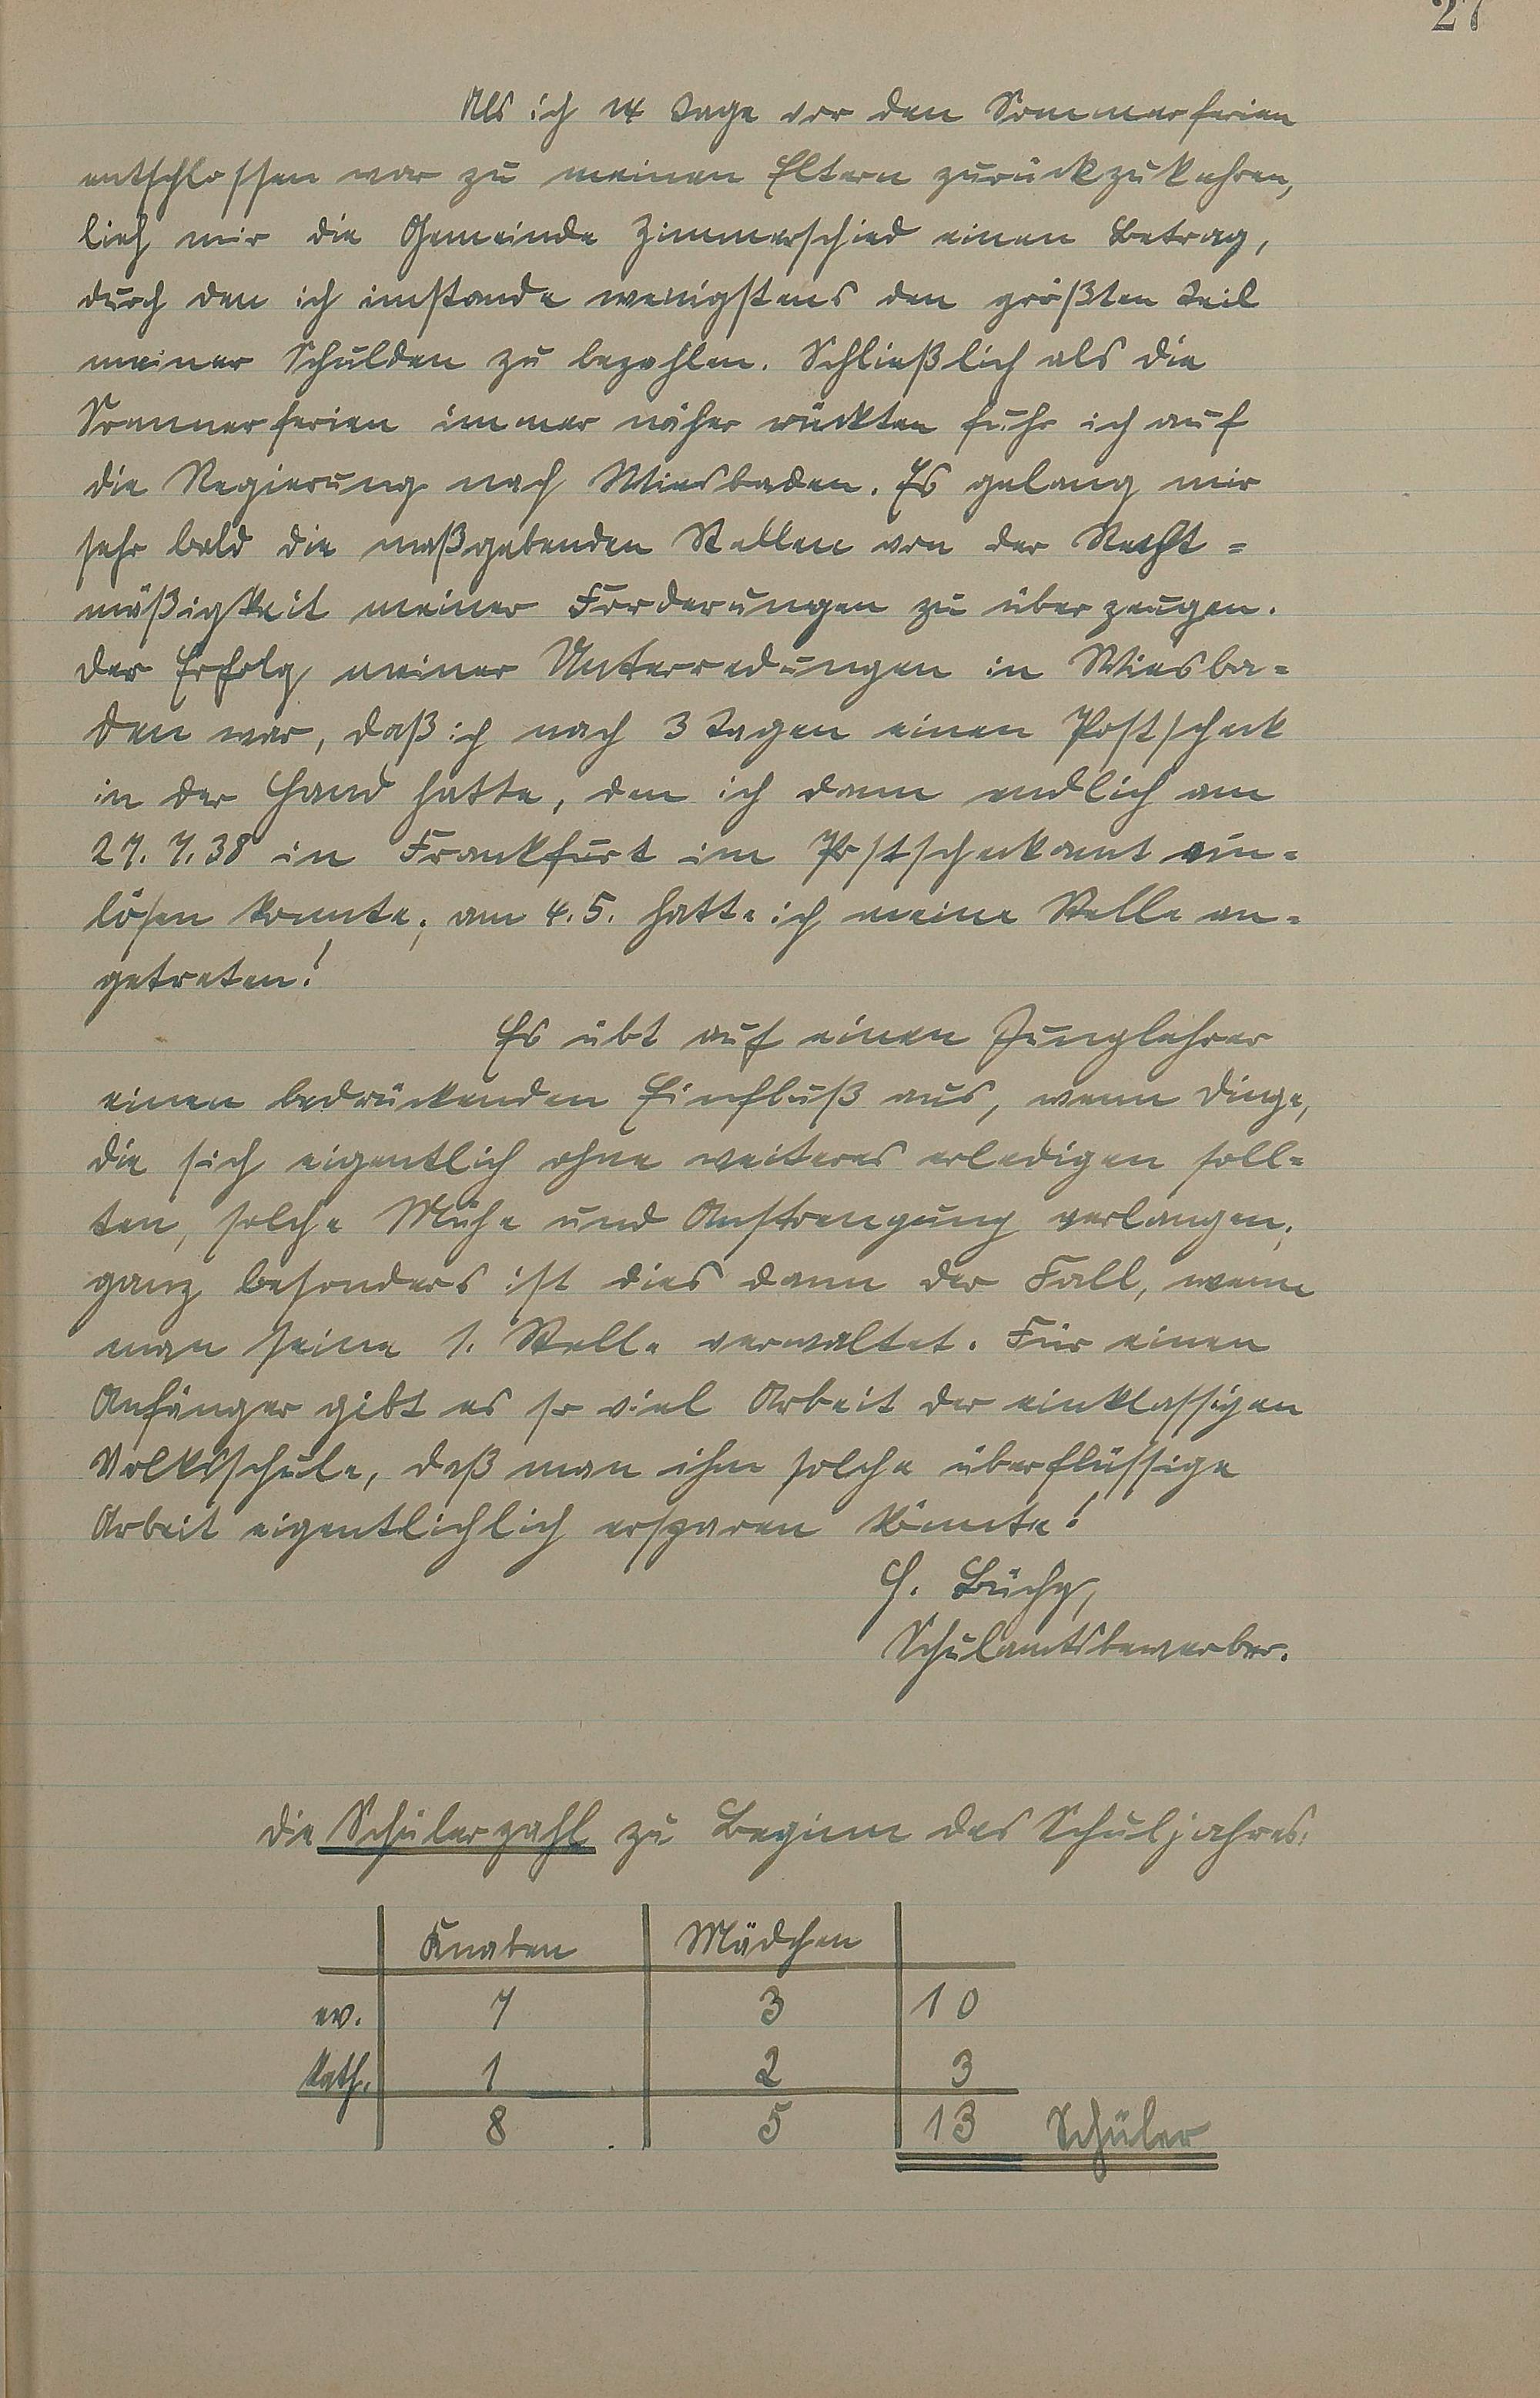 27
Als ich 14 Tage vor den Sommerferien
entschlossen war zu meinen Eltern zurückzukehren,
lieh mir die Gemeinde Zimmerschied einen Betrag,
durch den ich imstande wenigstens den größten Teil
meiner Schulden zu bezahlen. Schließlich als die
Sommerferien immer näher rückten fuhr ich auf
die Regierung nach Wiesbaden. Es gelang mir
sehr bald die maßgebenden Stellen von der Recht=
mäßigkeit meiner Forderungen zu überzeugen.
Der Erfolg meiner Unterredungen in Wiesba=
den war, daß ich nach 3 Tagen einen Postscheck
in der Hand hatte, den ich dann endlich am
27. 7. 38 in Frankfurt im Postscheckamt ein=
lösen konnte; am 4. 5. hatte ich meine Stelle an=
getreten!
Es übt auf einen Junglehrer
einen bedrückenden Einfluß aus, wenn Dinge,
die sich eigentlich ohne weiteres erledigen soll=
ten, solche Mühe und Anstrengung verlangen;
ganz besonders ist dies dann der Fall, wenn
man seine 1. Stelle verwaltet. Für einen
Anfänger gibt es so viel Arbeit der einklassigen
Volksschule, daß man ihm solche überflüssige
Arbeit eigentlichlich ersparen könnte!
H. Büchy,
Schulamtsbewerber.
Die Schülerzahl zu Beginn des Schuljahres:
Knaben Mädchen
ev. 7 3 10
kath. 1 2 3
8 5 13 Schüler